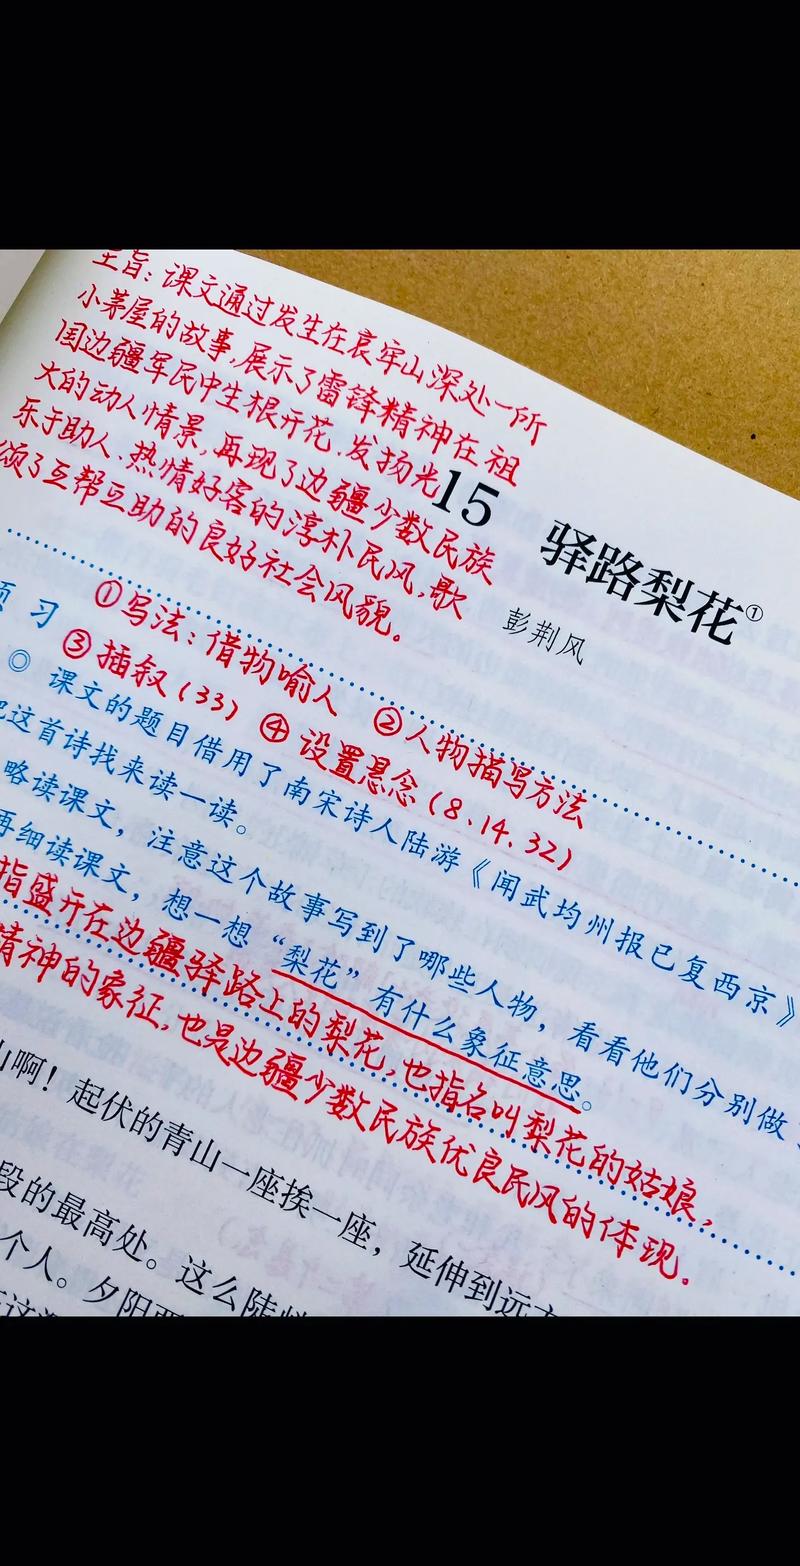 主旨：课文通过发生在哀牢山深处一所
小茅屋的故事，展示了雷锋精神在祖
国边疆军民中生根开花、发扬光
大的动人情景，再现了边疆少数民族
乐于助人、热情好客的淳朴民风。歌
颂了互帮互助的良好社会风貌。
15 驿路梨花①
彭荆风
预习
①写法：借物喻人 ②人物描写方法
③插叙（33） ④设置悬念（8、14、32）
◎ 课文的题目借用了南宋诗人陆游《闻武均州报已复西京》
把这首诗找来读一读。
略读课文，注意这个故事写到了哪些人物，看看他们分别做
再细读课文，想一想“梨花”有什么象征意思。
指盛开在边疆驿路上的梨花，也指名叫梨花的姑娘，
精神的象征，也是边疆少数民族优良民风的体现。
山啊！起伏的青山一座挨一座，延伸到远方
段的最高处。这么陡峭
个人。夕阳西